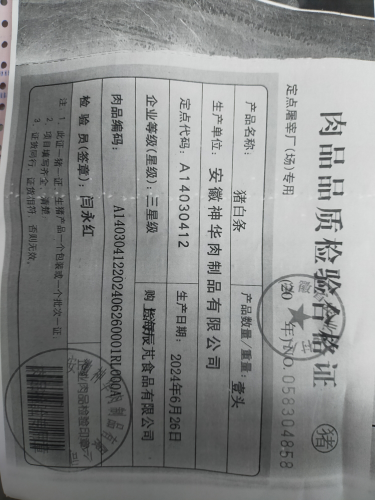 肉品品质检验合格证 猪
定点屠宰厂(场)专用
(20 年)NO.058304858
产品名称: 猪白条 产品数量/重量: 壹头
生产单位: 安徽神华肉制品有限公司
定点代码: A14030412 生产日期: 2024年6月26日
企业等级(星级): 三星级 购 上海辰芃食品有限公司
肉品编码:
检验员(签章): 闫永红
注: 1、此证一猪一证,生猪产品一个包装或一个批次一证;
2、项目填写齐全、清楚
3、证货同行,证货相符,否则无效。
肉品检验印章